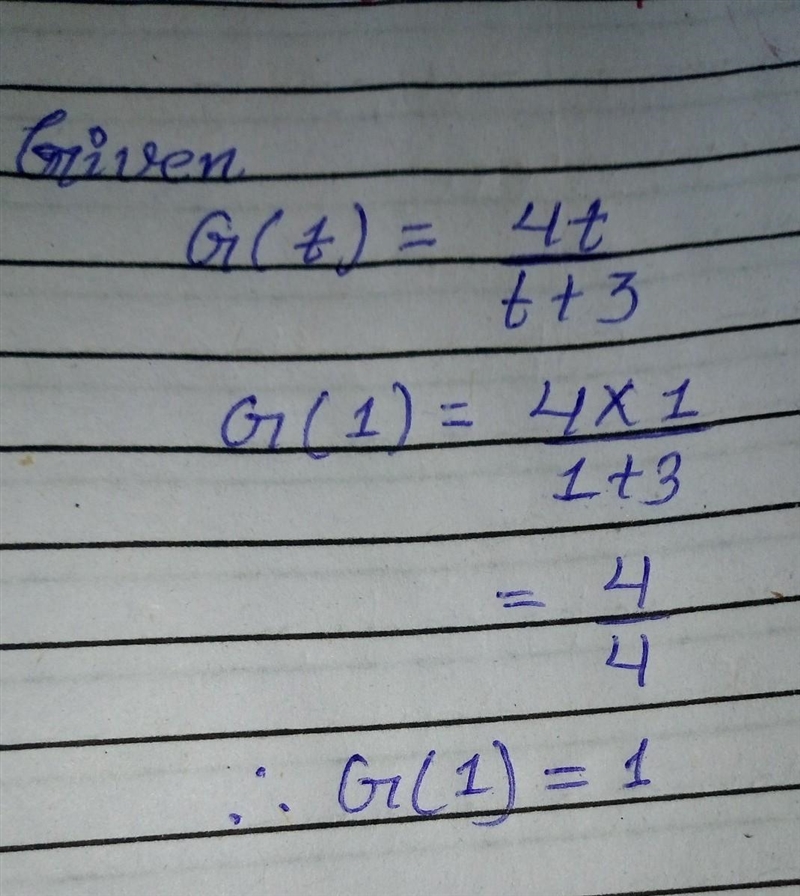 Given
G(t) = 4t / t+3
G(1) = 4×1 / 1+3
= 4 / 4
∴ G(1) = 1